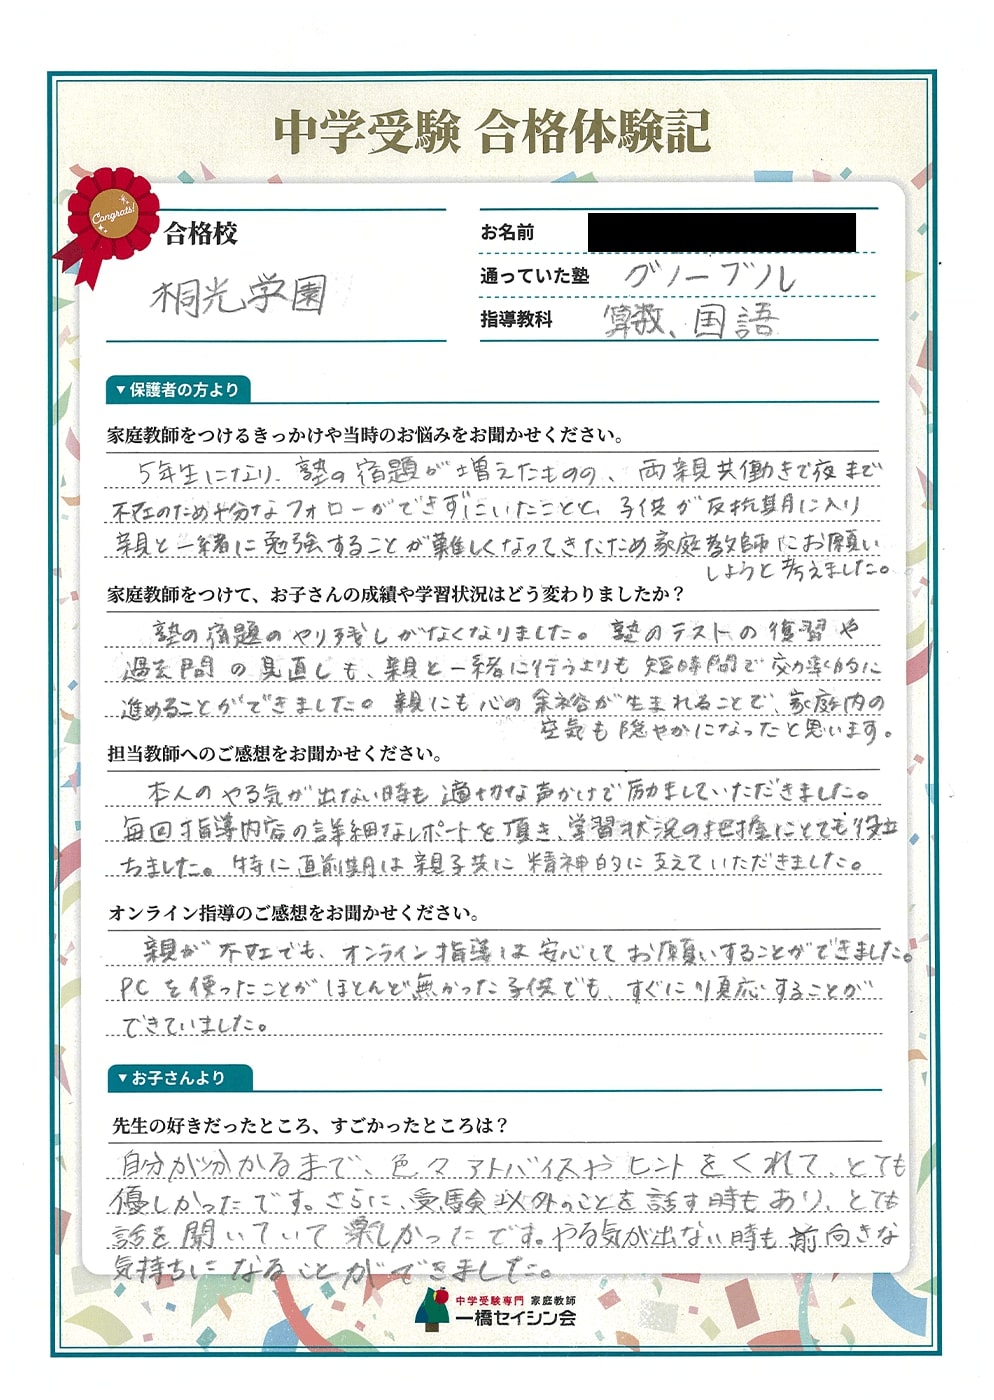 中学受験 合格体験記
Congrats!
合格校
桐光学園
お名前
通っていた塾 グノーブル
指導教科 算数、国語
▼保護者の方より
家庭教師をつけるきっかけや当時のお悩みをお聞かせください。
5年生になり、塾の宿題が増えたものの、両親共働きで夜まで
不在のため十分なフォローができずにいたことと、子供が反抗期に入り
親と一緒に勉強することが難しくなってきたため家庭教師にお願い
しようと考えました。
家庭教師をつけて、お子さんの成績や学習状況はどう変わりましたか？
塾の宿題のやり残しがなくなりました。塾のテストの復習や
過去問の見直しも、親と一緒に行うよりも短時間で効率的に
進めることができました。親にも心の余裕が生まれることで、家庭内の
空気も隠やかになったと思います。
担当教師へのご感想をお聞かせください。
本人のやる気が出ない時も適切な声かけで励ましていただきました。
毎回指導内容の詳細なレポートを頂き、学習状況の把握にとても役立
ちました。特に直前期は親子共に精神的に支えていただきました。
オンライン指導のご感想をお聞かせください。
親が不在でも、オンライン指導は安心してお願いすることができました。
PCを使ったことがほとんど無かった子供でも、すぐに順応することが
できていました。
▼お子さんより
先生の好きだったところ、すごかったところは？
自分が分かるまで、色々アドバイスやヒントをくれて、とても
優しかったです。さらに、受験以外のことを話す時もあり、とても
話を聞いていて楽しかったです。やる気が出ない時も前向きな
気持ちになることができました。
中学受験専門 家庭教師
一橋セイシン会